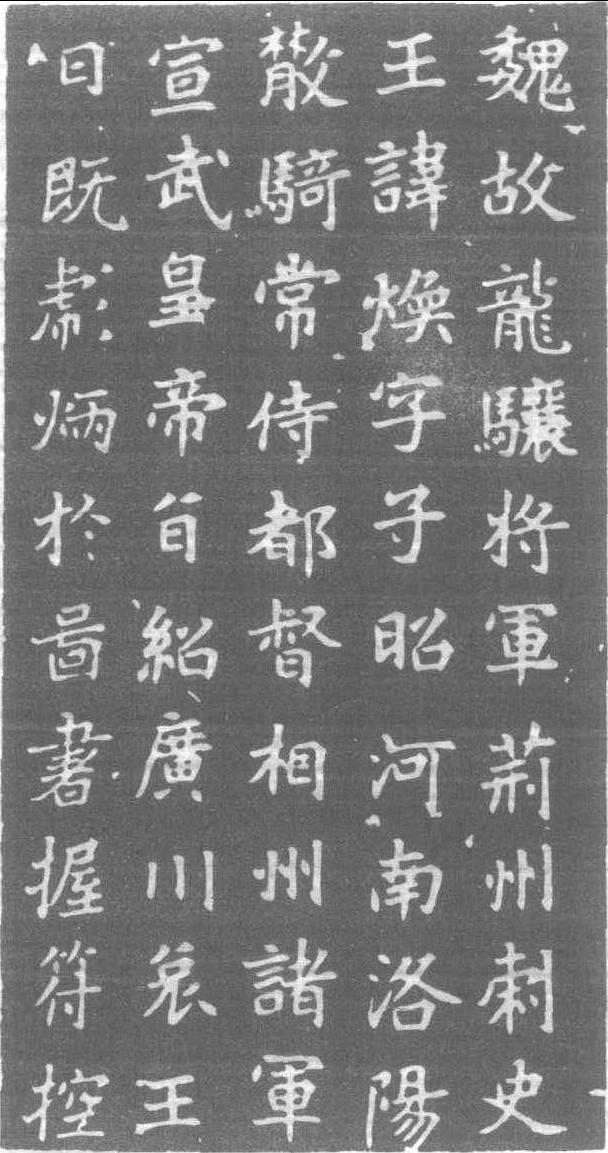 魏故龍驤将軍荊州刺史
王諱煥字子昭河南洛陽
散騎常侍都督相州諸軍
宣武皇帝旨紹廣川哀王
日既彪炳於啚書握符控